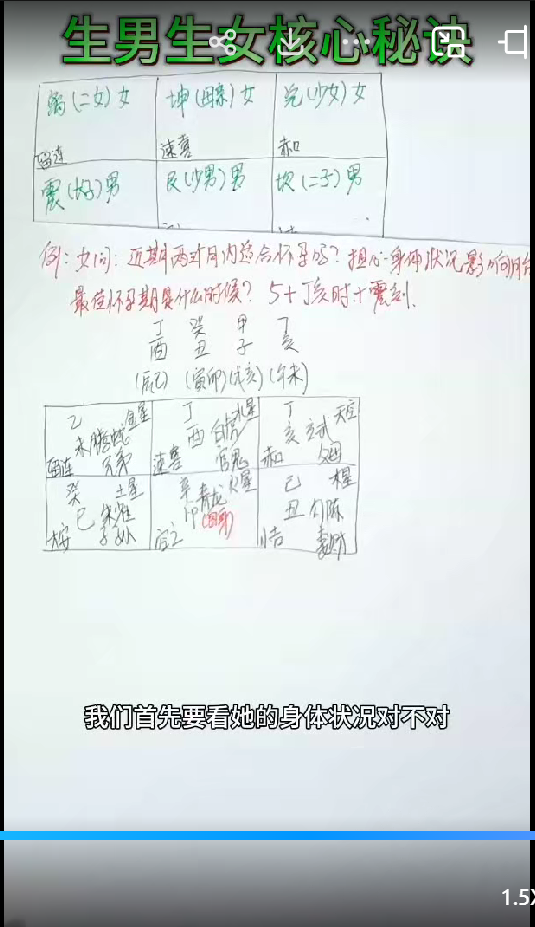 生男生女核心秘诀
离(二女)女 坤(母亲)女 兑(少女)女
留连 速喜 赤口
震(长子)男 艮(少男)男 坎(二子)男
例:女问:近期两个月内适合怀孕吗?担心身体状况影响
最佳怀孕期是什么时候? 5+丁亥时+震刻.
丁 癸 甲 丁
酉 丑 子 亥
(辰巳) (寅卯) (戌亥) (午未)
乙 金星 丁 水星 丁 天空
未 螣蛇 酉 白虎 亥 玄武
留连 兄弟 速喜 官鬼 赤口 父母
癸 土星 辛 青龙 火星 己 木星
巳 朱雀 卯 丑 勾陈
大安 子孙 空亡 小吉 妻财
我们首先要看她的身体状况对不对
1.5X